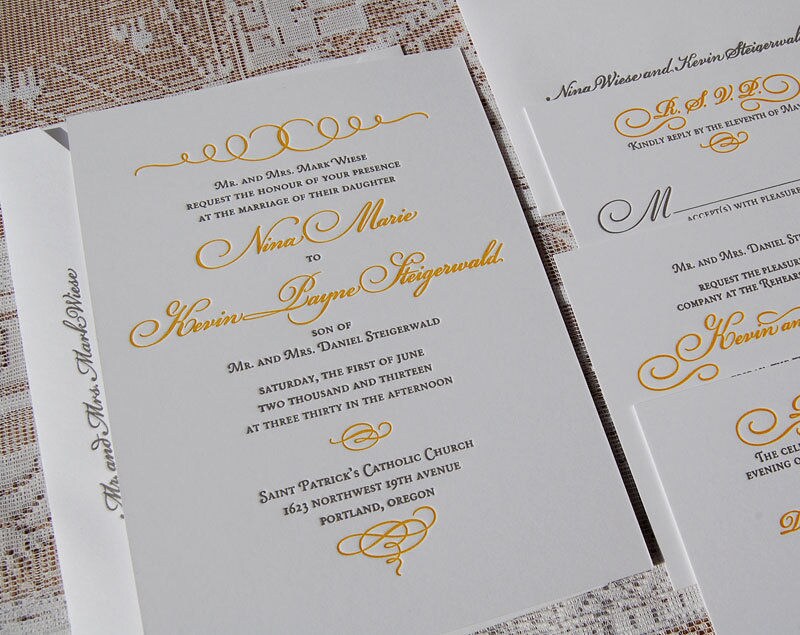 Mr. and Mrs. Mark Wiese
request the honour of your presence
at the marriage of their daughter
Nina Marie
to
Kevin Payne Steigerwald
son of
Mr. and Mrs. Daniel Steigerwald
Saturday, the first of June
two thousand and thirteen
at three thirty in the afternoon
Saint Patrick's Catholic Church
1623 Northwest 19th Avenue
Portland, Oregon
Mr. and Mrs. Mark Wiese
Nina Wiese and Kevin Steigerwald
R. S. V. P.
Kindly reply by the eleventh of
M
accept(s) with
Mr. and Mrs. Daniel
request the
company at the
Kevin and
The
evening